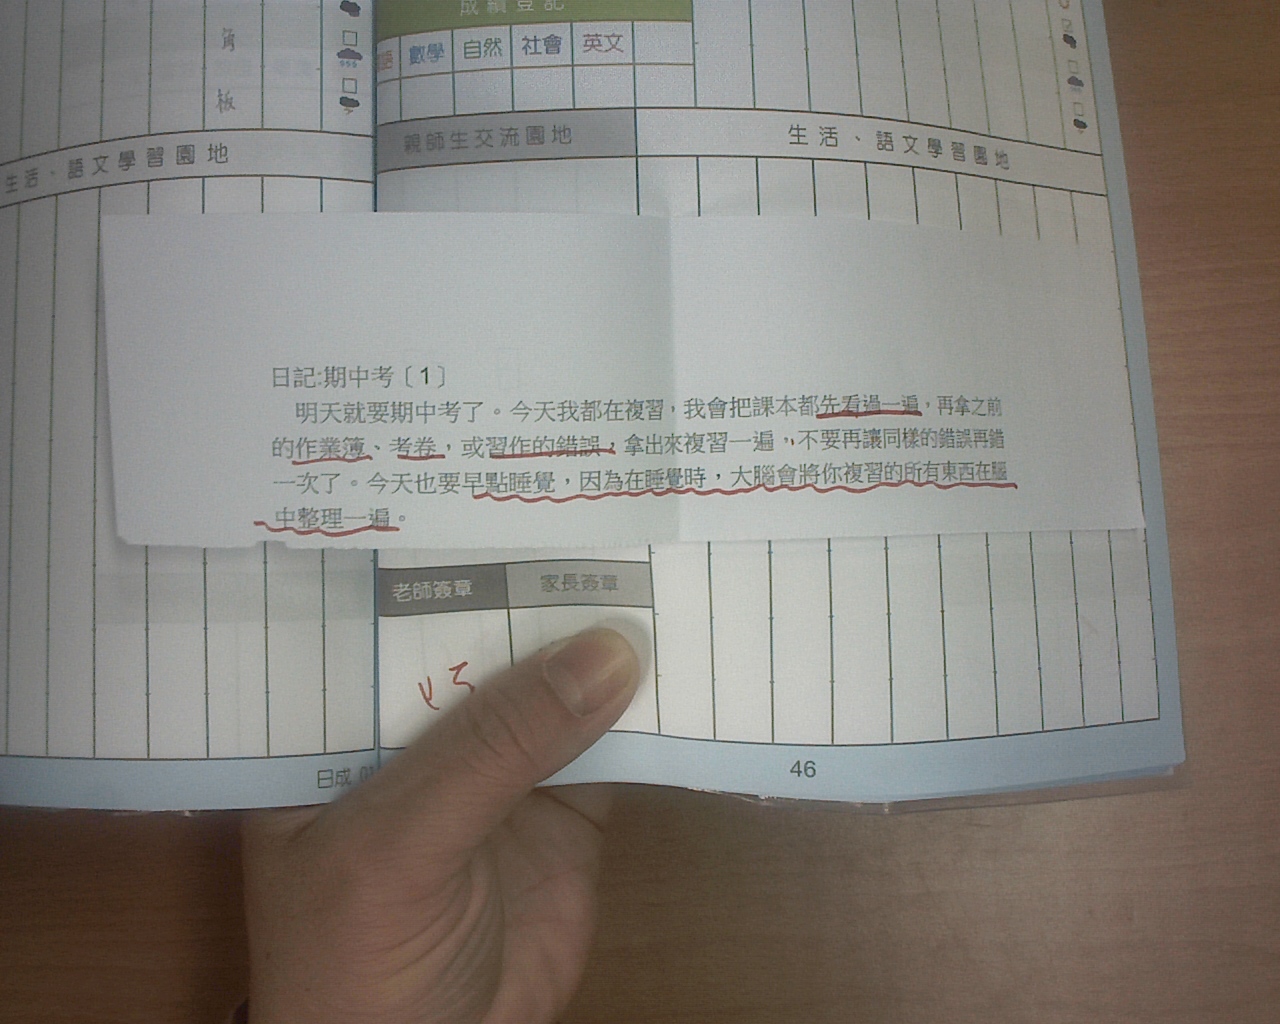 成績登記
數學 自然 社會 英文
角
板
生活、語文學習園地
親師生交流園地
生活、語文學習園地
日記:期中考〔1〕
明天就要期中考了。今天我都在複習，我會把課本都先看過一遍，再拿之前
的作業簿、考卷，或習作的錯誤，拿出來複習一遍，不要再讓同樣的錯誤再錯
一次了。今天也要早點睡覺，因為在睡覺時，大腦會將你複習的所有東西在腦
中整理一遍。
老師簽章 家長簽章
日成
46